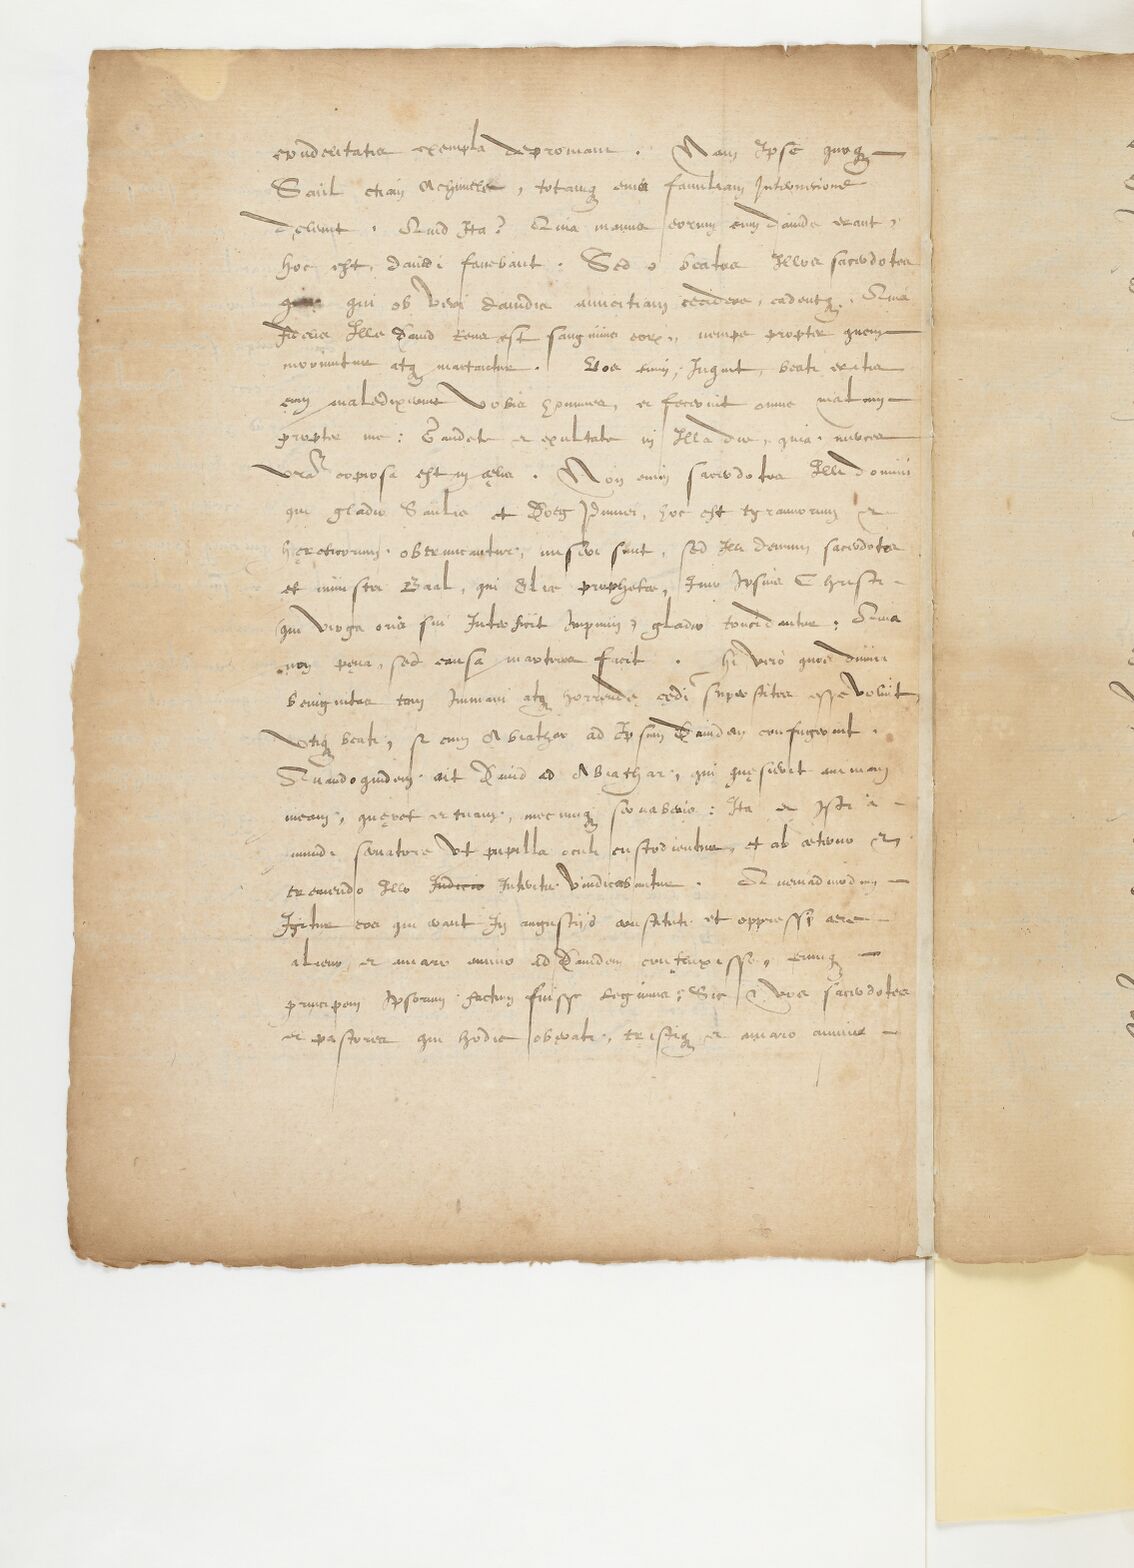 crudelitatis exempla depromam . Nam Ipse quoq
Saul etiam Achimelec, totamq eius familiam Internecione
delevit . Quid Ita? Quia manus eorum cum Dauide erant,
hoc est, dauidi fauebant . Sed o beatos Illos sacerdotes
qui ob veri dauidis amicitiam cecidere, cadentq. Quia
Ille Dauid reus est sanguinis eorū, nempe propter quem
moriuntur atq mactantur . Vos enim, Inquit, beati eritis
cum maledixerint vobis homines, et fecerint omne malum
propter me : Gaudete et exultate in Illa die, quia merces
vr̄a copiosa est in cęlis . Non enim sacerdotes Illi domini
qui gladio Saulis et Doeg Idumei, hoc est tyrannorum et
hęreticorum obtruncantur, miseri sunt, sed Illi demum sacerdotes
et ministri Baal, qui Elię prophetę, Imo Ipsius Christi
qui virga oris sui Interficit Impium, gladio conciduntur : Quia
non pęna, sed causa martyres facit . Hi vero quos diuina
benignitas tam Immani atq horrendę cędi superstites esse voluit,
vtiq beati, si cum Abiathar ad Ipsum Dauidem confugerint .
Quandoquidem ait Dauid ad Abiathar, qui quęsierit animam
meam, quęret et tuam, mecumq seruaberis : Ita et Isti a
mundi seruatore vt pupilla oculi custodientur, et ab ęterno et
tremendo Illo Iudicio Interitu vindicabuntur . Quemadmodum
Igitur eos qui erant In angustijs constituti et oppressi aere
alieno, et amaro animo ad Dauidem confluxisse, eumq
principem Ipsorum factum fuisse legimus : Sic et vos sacerdotes
et pastores qui hodie obęrati, tristiq et amaro animo